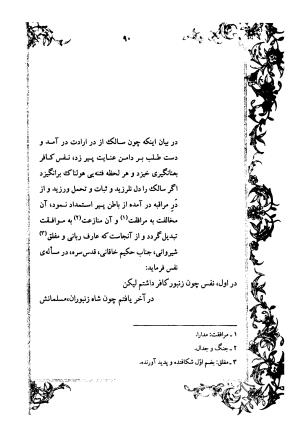 ۹۰
در بیان اینکه چون سالک از در ارادت در آمد و
دست طلب بر دامن عنایت پیر زد، نفس کافر
بعنانگیری خیزد و هر لحظه فتنه‌یی هولناک برانگیزد
اگر سالک را دل نلرزید و ثبات و تحمل ورزید و از
در مراقبه در آمده از باطن پیر استمداد نمود، آن
مخالفت به مرافقت(۱) و آن منازعت(۲) به موافقت
تبدیل گردد و از آنجاست که عارف ربانی و مفلق(۳)
شیروانی، جناب حکیم خاقانی، قدس سره، در مسأله‌ی
نفس فرماید:
در اول، نفس چون زنبور کافر داشتم لیکن
در آخر یافتم چون شاه زنبوران، مسلمانش
۱ ـ مرافقت: مدارا.
۲ ـ جنگ و جدال.
۳ ـ مفلق: بضم اوّل شکافنده و پدید آورنده.